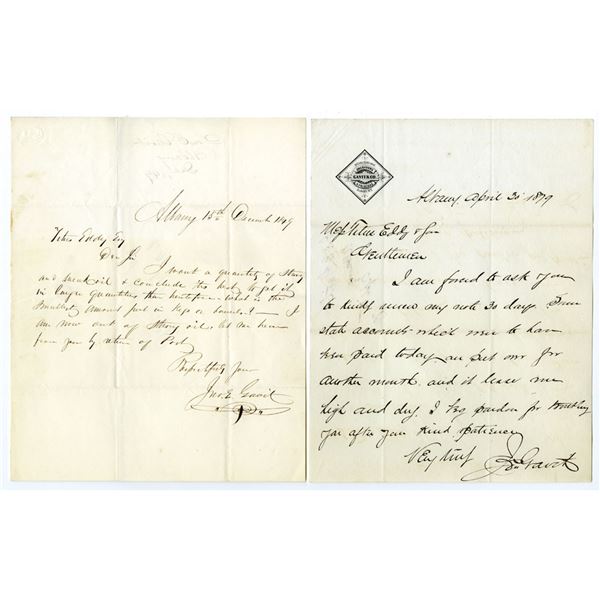 Albany 18th December 1849
Titus Eddy Esq
Dr Sir
I want a quantity of Strong
and weak oil & conclude the best way to get it
in larger quantities than heretofore what is the
Smallest amount put in kegs or barrels? I
am now out of Strong oil let me hear
from you by return of Post
Respectfully Yours
Jno. E. Gavit
GAVIT & CO.
Albany April 30 1879
Mess Titus Eddy & Son
Gentlemen
I am forced to ask you
to kindly renew my note 30 days. Some
state accounts which were to have
been paid today are put over for
another month and it leaves me
high and dry. I beg pardon for troubling
you after your kind patience
Very truly
Gavit